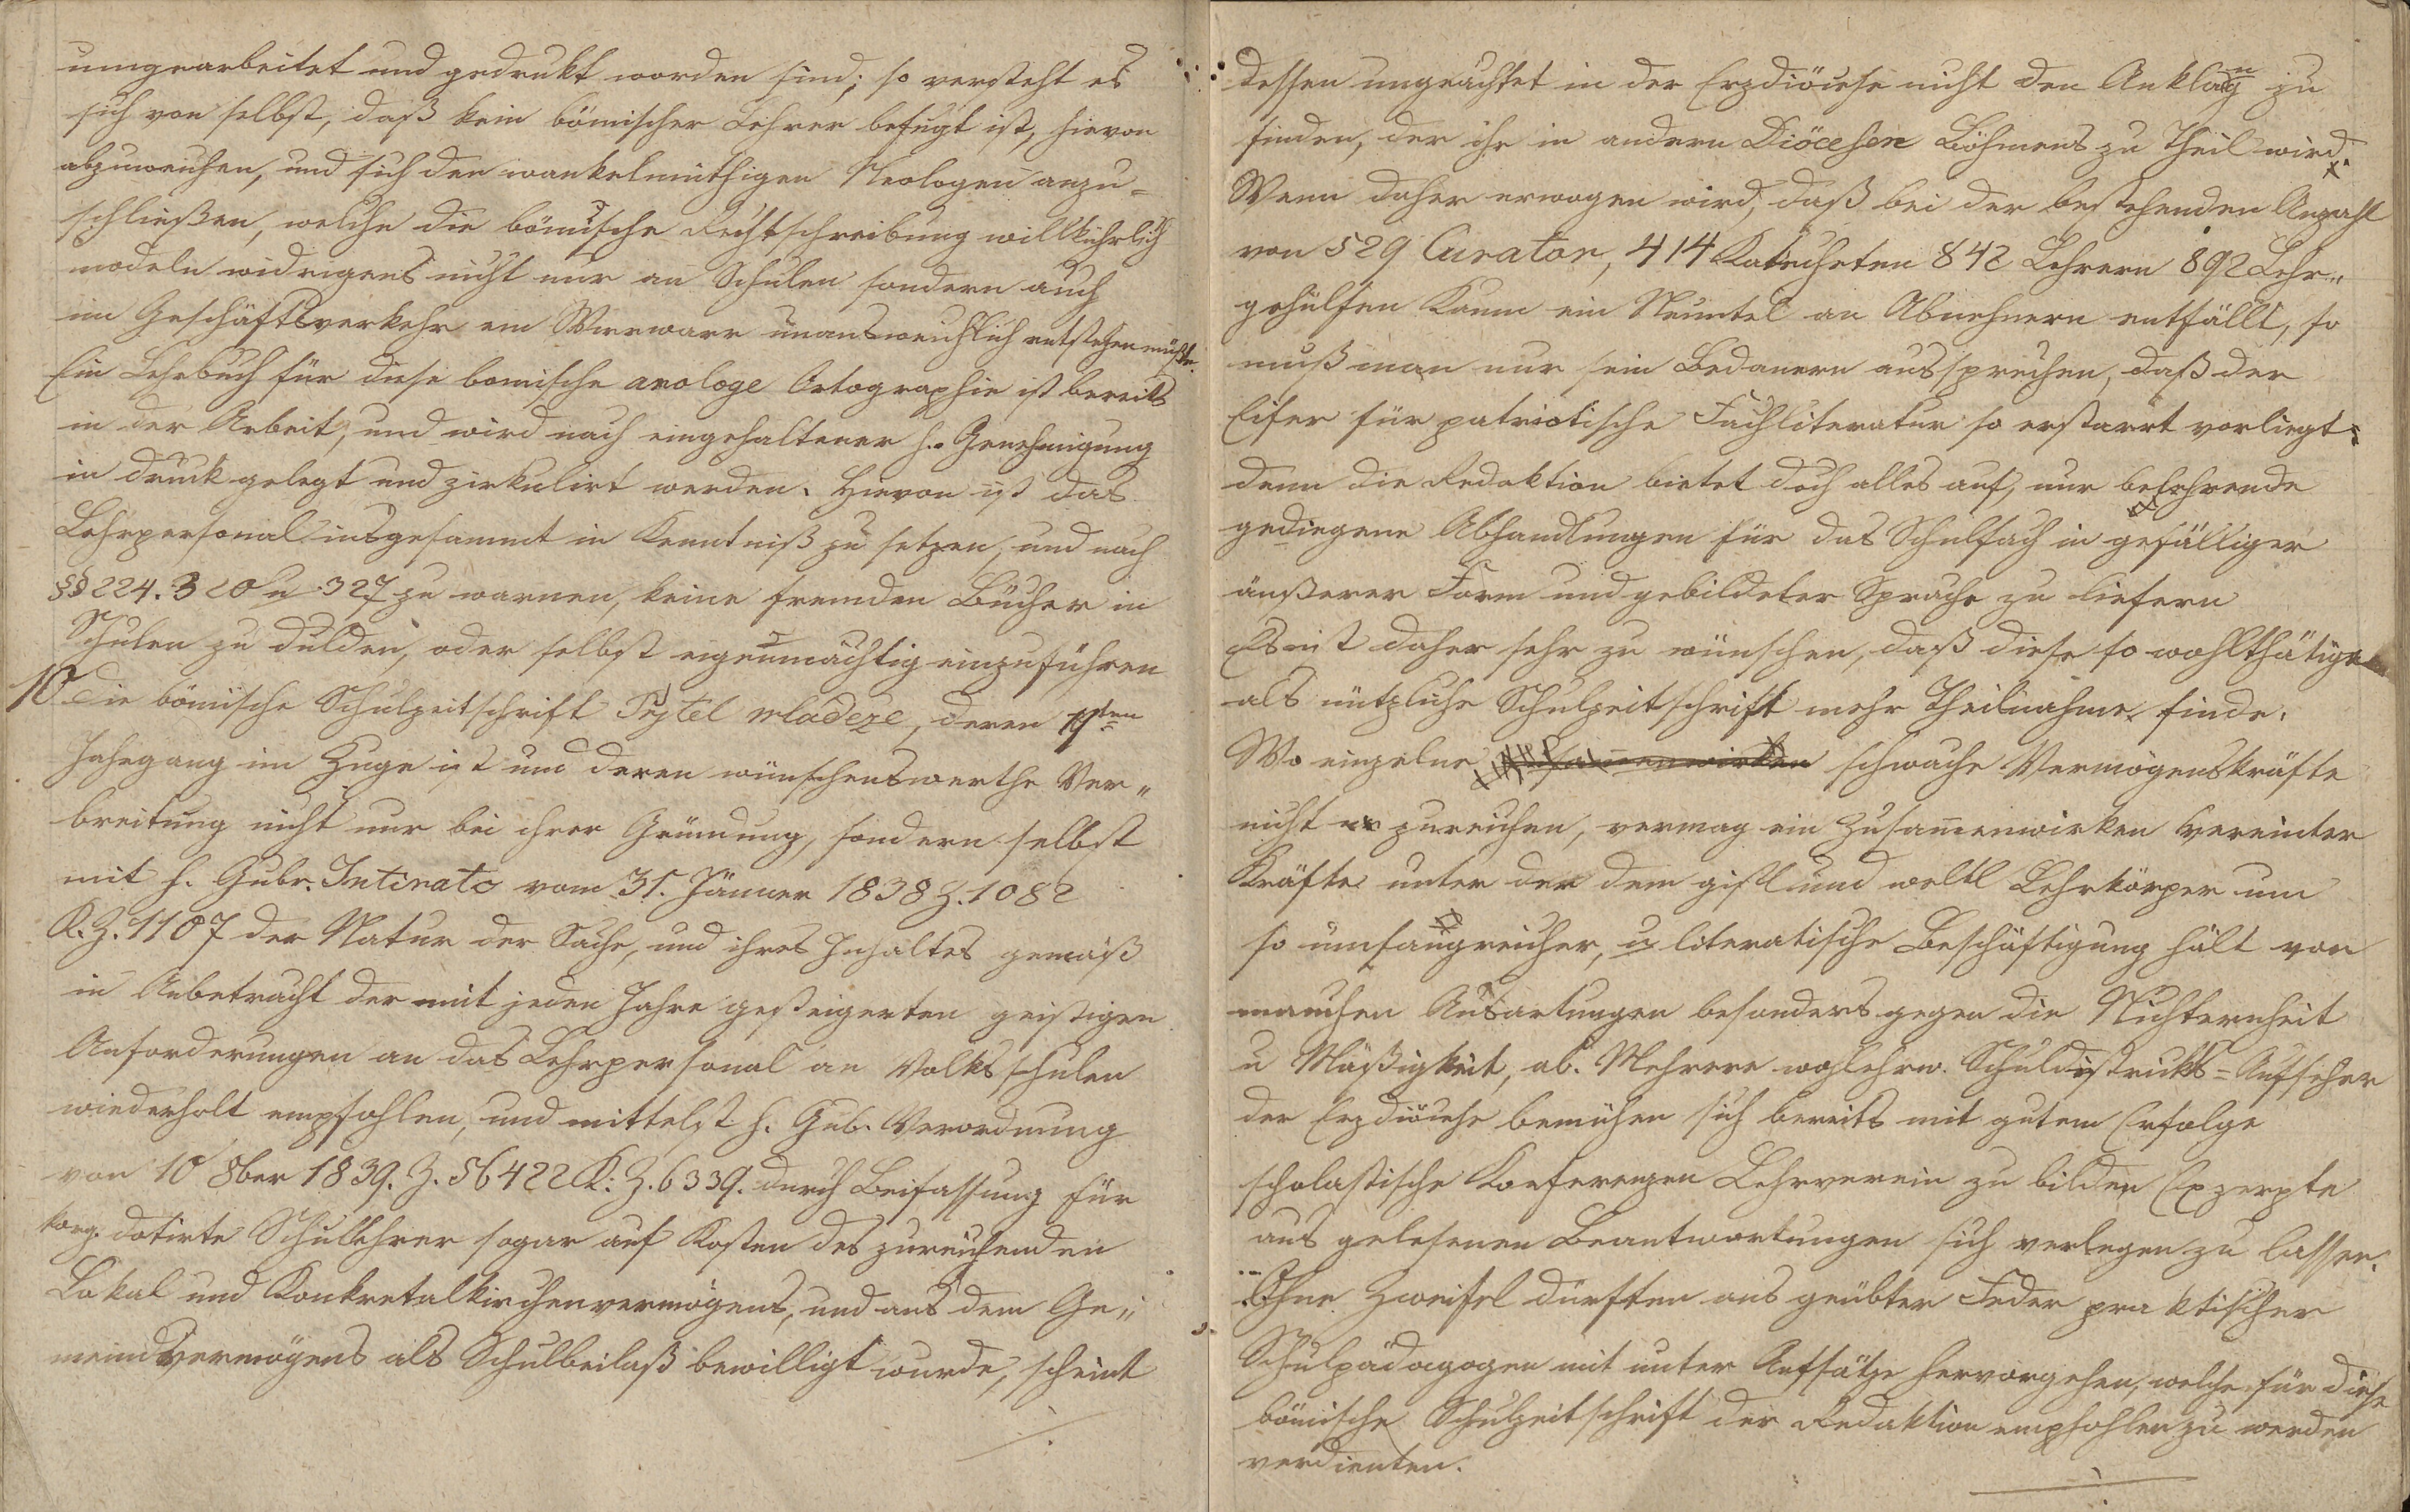 umgearbeitet und gedrukt worden sind; so versteht es
sich von selbst, daß kein bömischer Lehrer befugt ist, hievon
abzuweichen, und sich den wankelmüthigen Neologen anzu-
schließen, welche die bömische Rechtschreibung willkührlich
modeln widrigens nicht nur an Schulen sondern auch
im Geschäftsverkehr ein Wirrwarr unausweichlich entstehen müßte.
Ein Lehrbuch für diese bomische anologe Ortographie ist bereits
in der Arbeit, und wird nach eingehaltener h. Genehmigung
in druck gelegt und zirkulirt werden. Hievon ist das
Lehrpersonal insgesammt in Kenntniß zu setzen, und nach
§§ 224. 320 u 327 zu warnen, keine fremden Bücher in
Schulen zu dulden, oder selbst eigenmächtig einzuführen
10 die bömische Schulzeitschrift Pejtel mladeze, deren 11ten
Jahrgang im Zuge ist und deren wünschenswerthe Ver„
breitung nicht nur bei ihrer Gründung, sondern selbst
mit h. Gubr. Intinato vom 31. Jänner 1838 Z. 1082
K. Z. 1107 der Natur der Sache, und ihres Inhaltes gemäß
in Anbetracht der mit jeden Jahre gesteigerten geistigen
Anforderungen an das Lehrpersonal an Volksschulen
wiederholt empfohlen, und mittelst h. Gub. Verordnung
von 10 8ber 1839. Z. 56422 K: Z. 6339. durch Beifassung für
korg. dotirte Schullehrer sogar auf Kosten des zureichenden
Lokal und Konkretalkirchenvermögens, und aus dem Ge„
meindvermögens als Schulbeilaß bewilligt wurde, scheint
dessen ungeachtet in der Erzdiöcese nicht den Anklang zu
finden, der ihr in andern Diöcesen Böhmens zu Theil wird.
Wenn daher erwogen wird, daß bei der bestehenden Anzahl
von 529 Curaton, 414 Katecheten 842 Lehrern 892 Lehr„
gehülfen kaum ein Neuntel an Abnehmern entfällt, so
muß man nur sein Bedauern aussprechen, daß der
Eifer für patriotische Fachliteratur so erstarrt vorliegt
denn die Redaktion bietet doch alles auf, nur belehrende
gediegene Abhandlungen für das Schulfach in gefälliger
äußerer Form und gebildeter Sprache zu liefern
Es ist daher sehr zu wünschen, daß diese so wohlthätige
als nützliche Schulzeitschrift mehr Theilnahme finde.
Wo einzelne schwache Vermögenskräfte
nicht zureichen, vermag ein Zusam̅enwirken vereinter
Kräfte unter der dem gistl und weltl Lehrkörper um
so umfangreicher, u literatische Beschäftigung hält von
manchen Ausartungen besonders gegen die Nichternheit
u Mäßigkeit, ab. Mehrere wohlehrw. Schuldistrikts-Aufseher
der Erzdiöcese bemühen sich bereits mit gutem Erfolge
scholastische Konferenzen Lehrverein zu bilden Exzerpte
aus gelesenen Beantwortungen sich verlegen zu lassen.
Ohne Zweifel dürften aus geübter Feder praktischer
Schulpädagogen mit unter Aufsätze hervorgehen, welche für diese
bömische Schulzeitschrift der Redaktion empfohlen zu werden
verdienten.